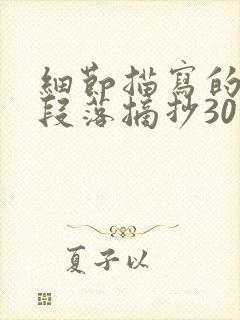 細節描寫的
段落摘抄30
夏子以